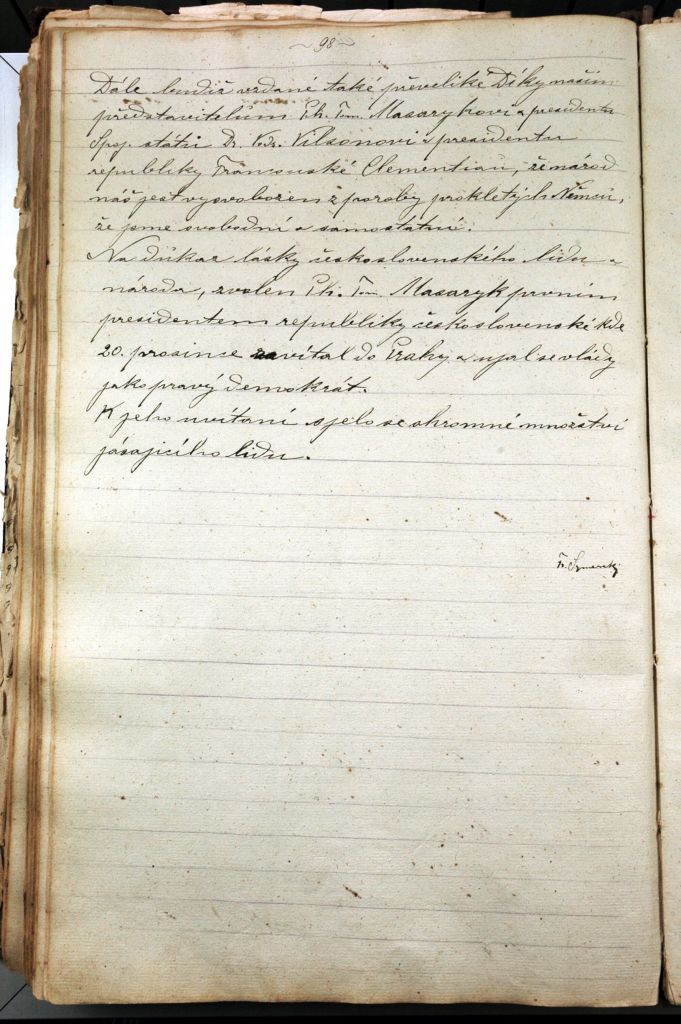 ~ 98 ~
Dále budiž vzdané také převeliké Díky našim
představitelům Ph. Tom. Masarykovi a presidentu
Spoj. států Dr. Vodr. Vilsonovi a presidentu
republiky Francouské Clementiau, že národ
náš jest vysvobozen z poroby prokletých Němců,
že jsme svobodní a samostatné.
Na důkaz lásky československého lidu a
národa, zvolen Ph. Tom. Masaryk prvním
presidentem republiky československé kde
20. prosince zavítal do Prahy a ujal se vlády
jako pravý demokrát.
K jeho uvítaní sjelo se ohromné množství
jásajicího lidu.
Fr.